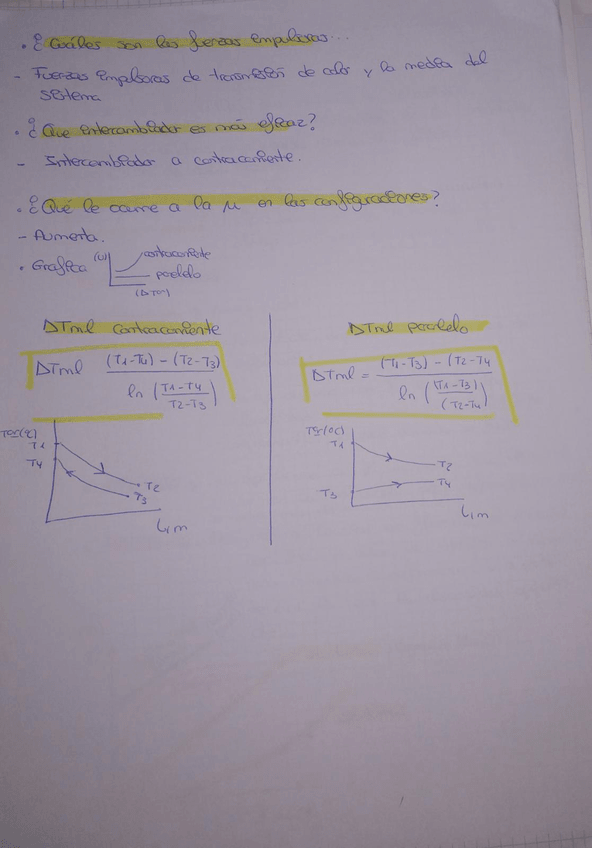 • ¿Cuáles son las fuerzas impulsoras...
- Fuerzas impulsoras de transmisión de calor y la media del
sistema
• ¿Que intercambiador es más eficaz?
- Intercambiador a contracorriente.
• ¿Qué le ocurre a la μ en las configuraciones?
- Aumenta.
• Grafica (U) contracorriente
paralelo
(ΔTml)
ΔTml contracorriente
ΔTml (T1-T4) - (T2-T3)
ln (T1-T4 / T2-T3)
Tec(ºC)
T1
T4
T2
T3
L, m
ΔTml paralelo
ΔTml = (T1-T3) - (T2-T4
ln ((T1-T3) / (T2-T4)
Tec(ºC)
T1
T2
T4
T3
L, m